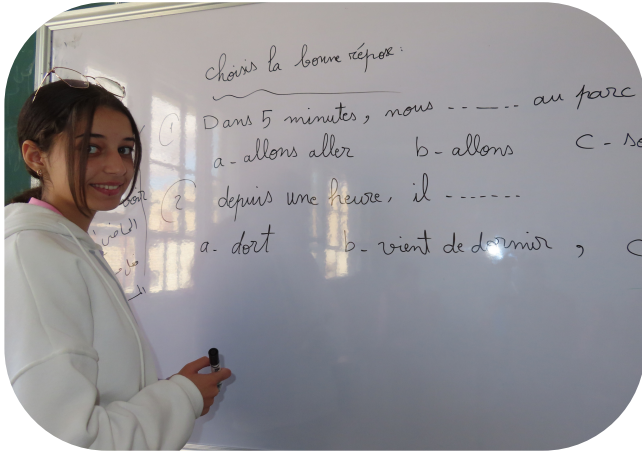 choisis la bonne répose :
① Dans 5 minutes, nous ------- au parc
a - allons aller b - allons C - so
② depuis une heure, il -------
a. dort b - vient de dormir , C
الماضي